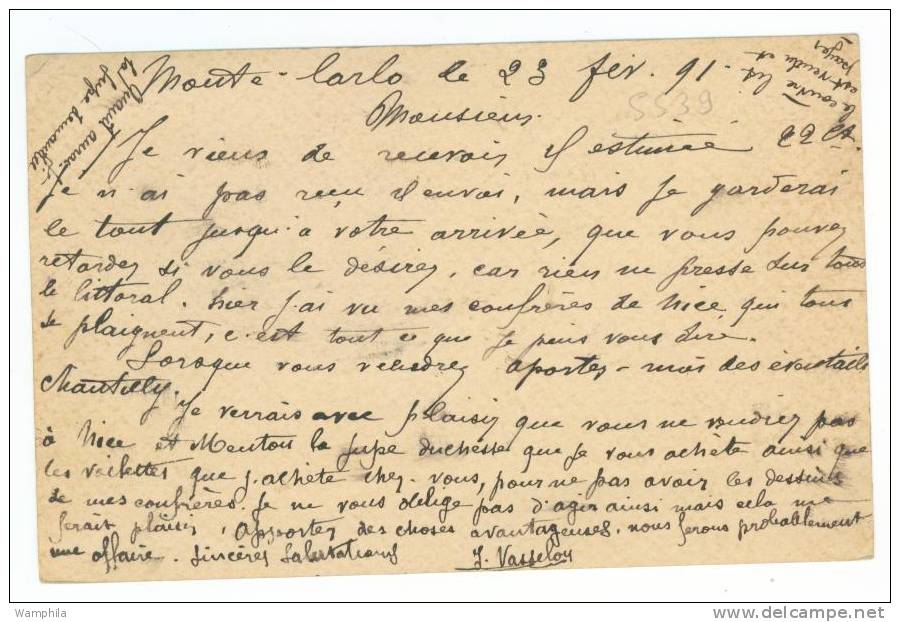 Monte-Carlo le 23 fev. 91.
5539
Monsieur.
Je viens de recevoir l'estimée 22 ct.
Je n'ai pas reçu l'envoi, mais je garderai
le tout jusqu'à votre arrivée, que vous pouvez
retardez si vous le désirez, car rien ne presse sur tous
le littoral. hier j'ai vu mes confrères de Nice qui tous
se plaignent, c'est tout ce que je puis vous dire.
Lorsque vous viendrez aportez-moi des éventails
Chantilly.
Je verrais avec plaisir que vous ne vendiez pas
à Nice et Menton la jupe duchesse que je vous achète ainsi que
les voilettes que j'achète chez-vous, pour ne pas avoir les dessins
de mes confrères. Je ne vous oblige pas d'agir ainsi mais cela me
ferait plaisir, Apportez des choses avantageuses, nous ferons probablement
une affaire. Sincères Salutations
J. Vasseloy
Quand aurai-
la jupe demandée
la contre
est vendue et
payée
Wamphila
http://www.delcampe.net